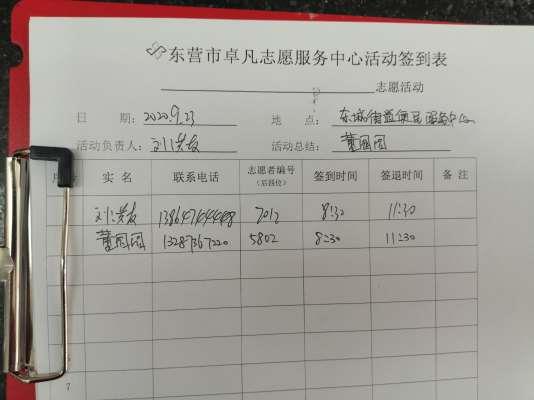 东营市卓凡志愿服务中心活动签到表
志愿活动
日 期: 2020.9.23 地 点: 东城街道便民服务中心
活动负责人: 刘洪友 活动总结: 董园园
序 实 名 联系电话 志愿者编号 签到时间 签退时间 备 注
(后四位)
刘洪友 7012 8:30 11:30
董园园 13287367220 5802 8:30 11:30
7